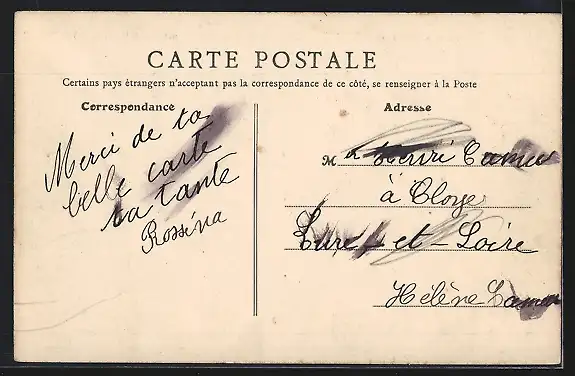 CARTE POSTALE
Certains pays étrangers n'acceptant pas la correspondance de ce côté, se renseigner à la Poste
Correspondance
Adresse
Merci de ta
belle carte
ta tante
Rossina
M r Henri
à Cloye
Eure-et-Loire
Hélène